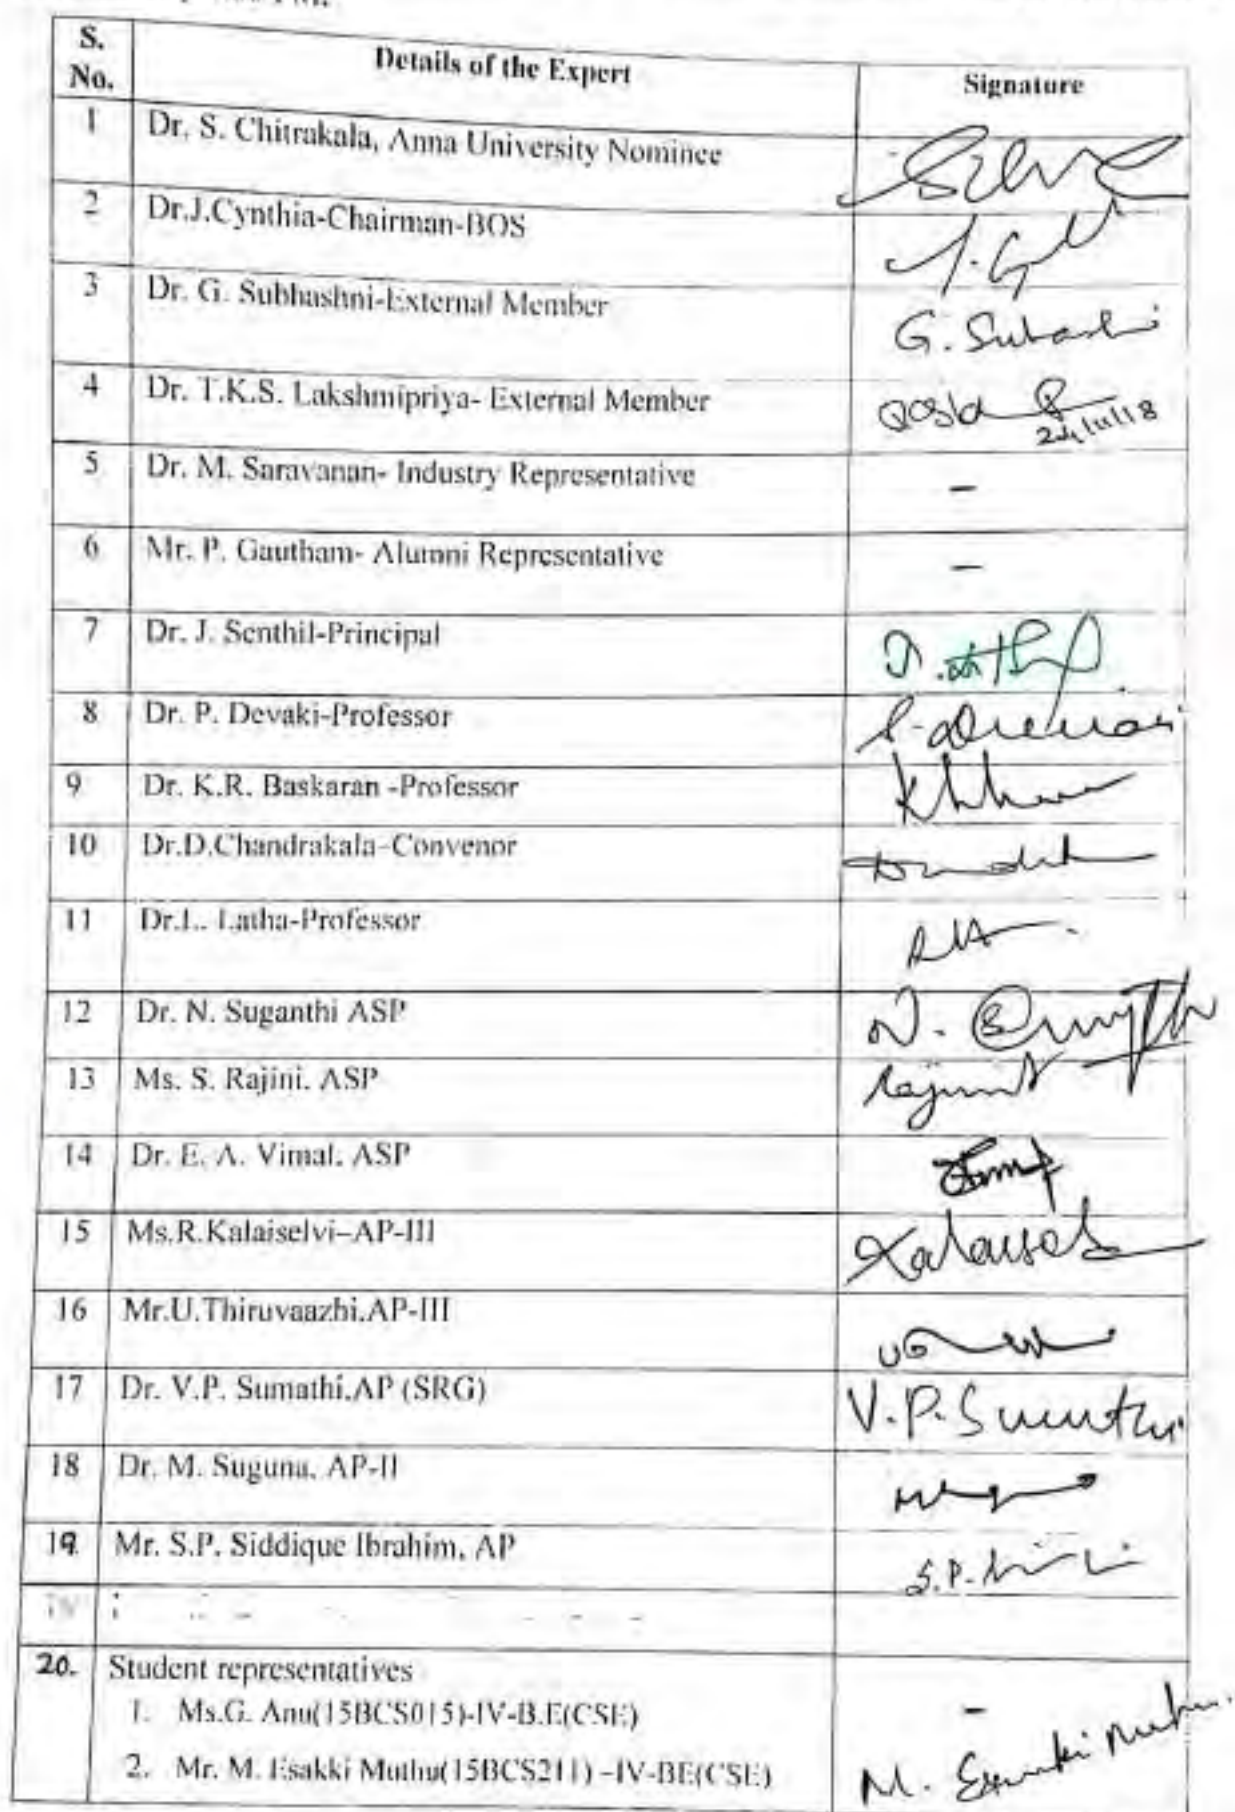 S. No. Details of the Expert Signature
1 Dr. S. Chitrakala, Anna University Nominee
2 Dr.J.Cynthia-Chairman-BOS
3 Dr. G. Subhashni-External Member G. Subashi
4 Dr. T.K.S. Lakshmipriya- External Member
24/11/18
5 Dr. M. Saravanan- Industry Representative -
6 Mr. P. Gautham- Alumni Representative -
7 Dr. J. Senthil-Principal
8 Dr. P. Devaki-Professor
9 Dr. K.R. Baskaran -Professor
10 Dr.D.Chandrakala–Convenor
11 Dr.L. Latha-Professor
12 Dr. N. Suganthi ASP
13 Ms. S. Rajini. ASP
14 Dr. E. A. Vimal. ASP
15 Ms.R.Kalaiselvi–AP-III
16 Mr.U.Thiruvaazhi.AP-III
17 Dr. V.P. Sumathi.AP (SRG) V.P. Sumathi
18 Dr. M. Suguna, AP-II
19 Mr. S.P. Siddique Ibrahim, AP
20. Student representatives
1. Ms.G. Anu(15BCS015)-IV-B.E(CSE) -
2. Mr. M. Esakki Muthu(15BCS211) –IV-BE(CSE) M. Esakki Muthu